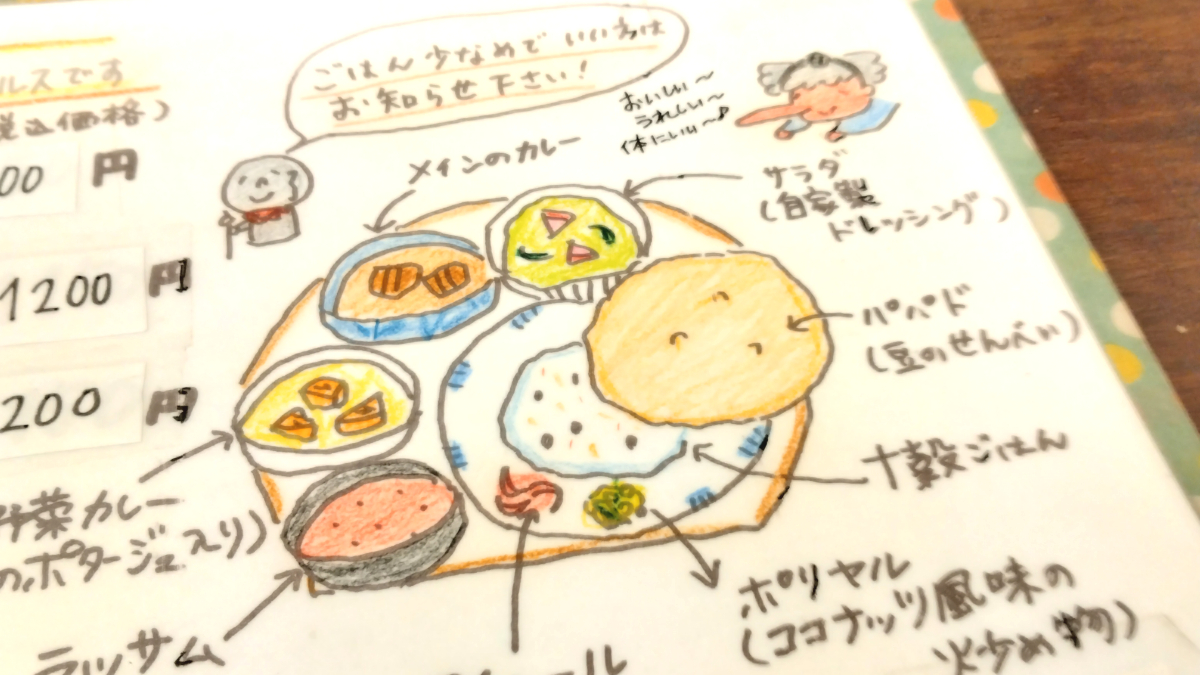 ルスです
税込価格)
00 円
1200 円
200 円
ごはん少なめでいい方は
お知らせ下さい!
おいしい〜
うれしい〜
体にいい〜♪
メインのカレー
サラダ
(自家製
ドレッシング)
パパド
(豆のせんべい)
十穀ごはん
ポリヤル
(ココナッツ風味の
炒め物)
野菜カレー
のポタージュ入り)
ラッサム
ール